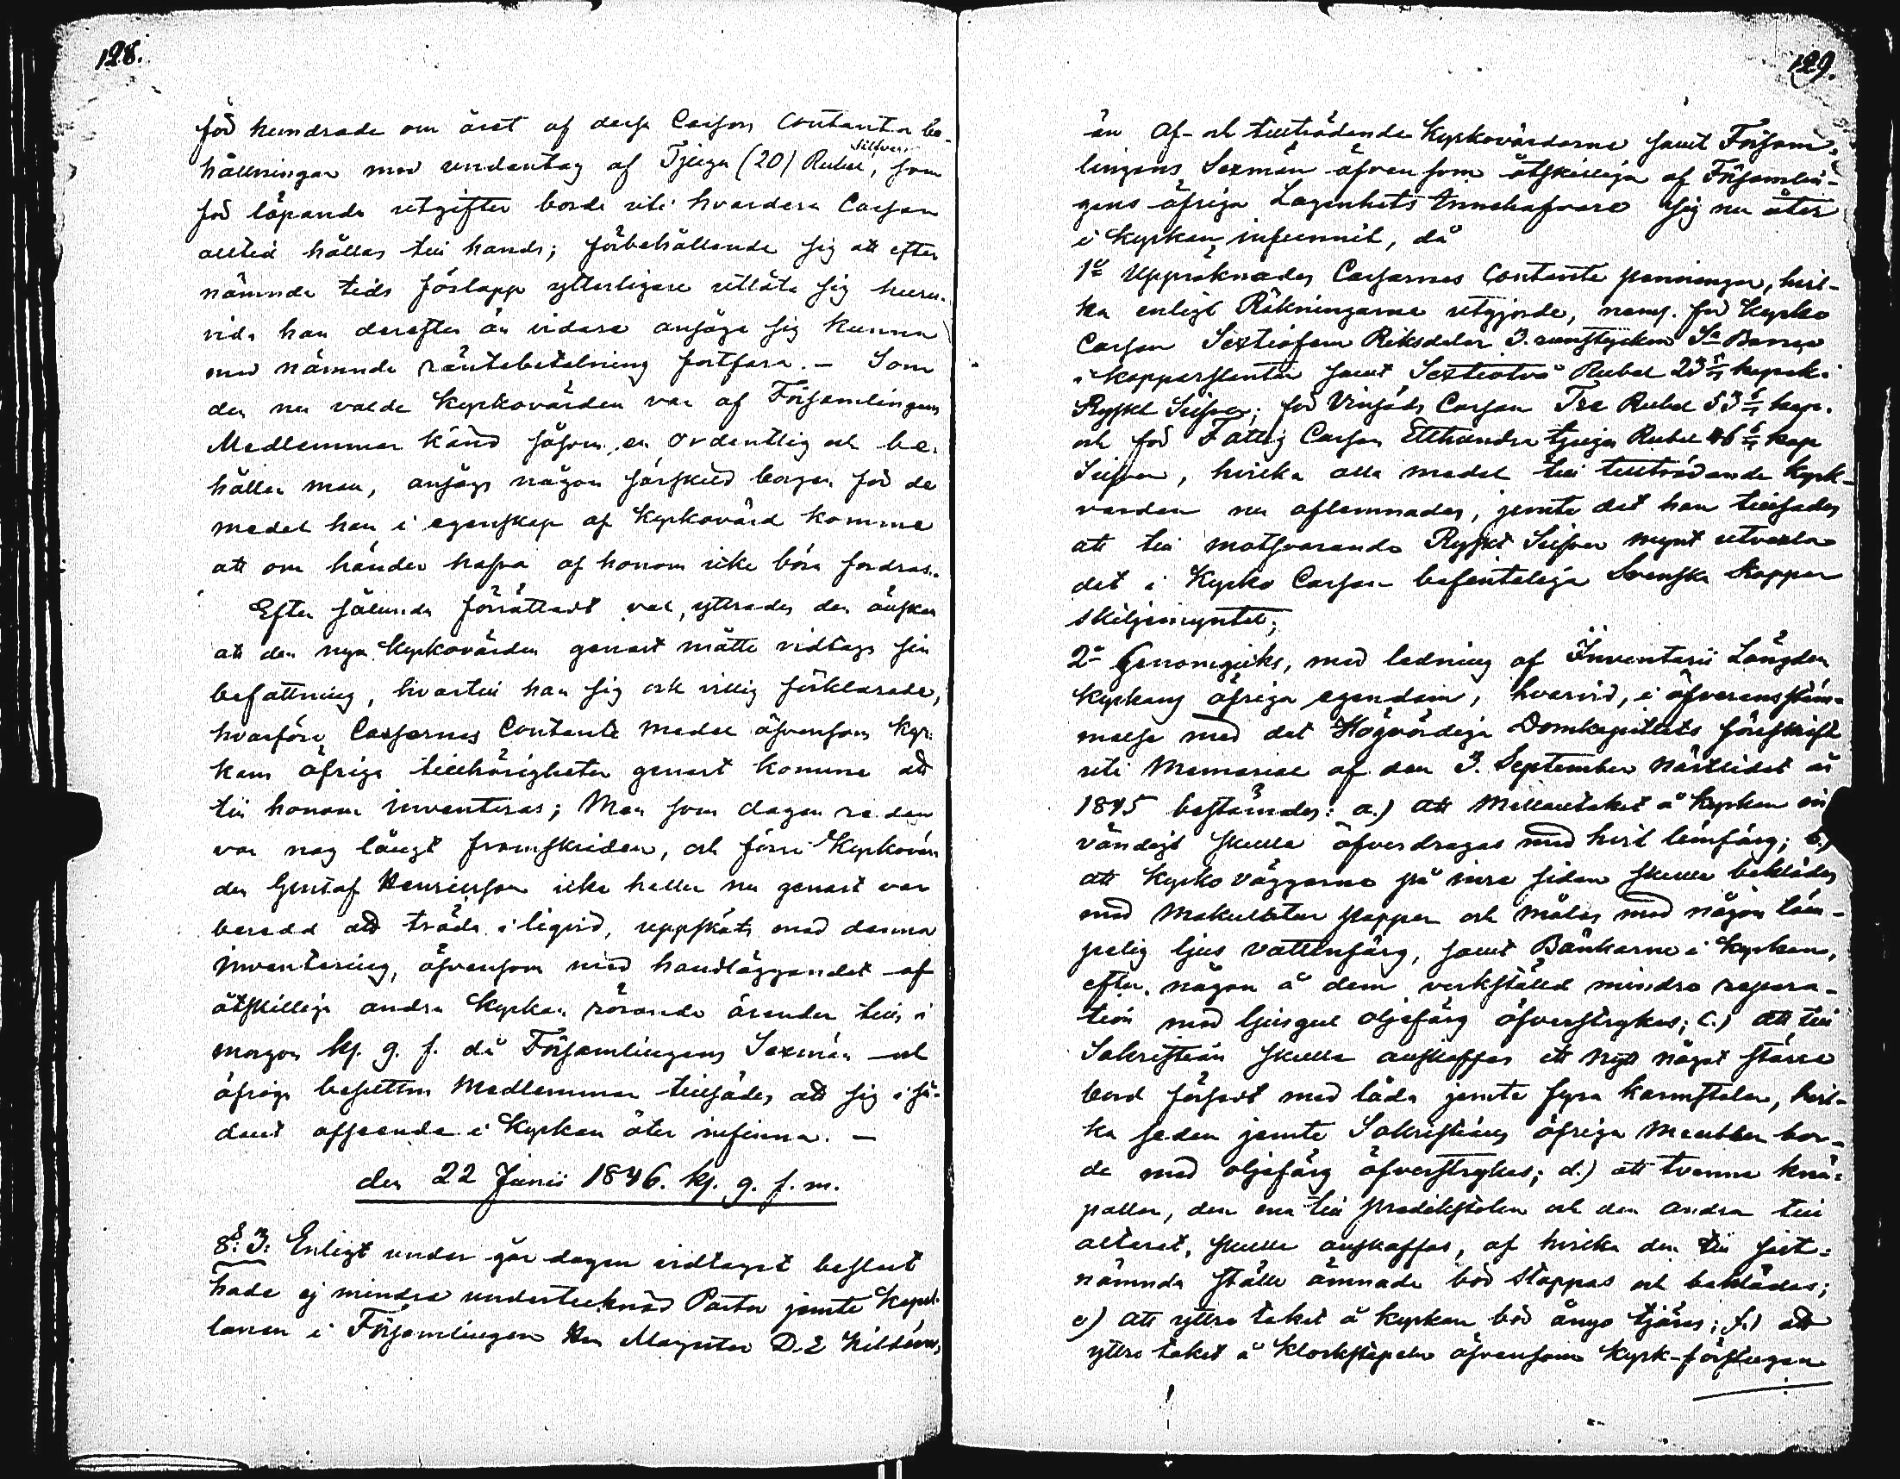 128.
för hundrade om året af dessa Cassors Contanta be-
hållningar med undantag af Tjugu (20) Rubel Silfver, som
för löpande utgifter borde uti hvardera Cassan
alltid hållas till hands; förbehållande sig att efter
nämnde tids förlopp ytterligare utlåta sig huru-
vida han derefter än vidare ansåge sig kunna
med nämnde räntebetalning fortfara. — Som
den nu valde Kyrkovärden var af Församlingens
Medlemmar känd såsom en ordentlig och be-
hållen man, ansågs någon särskild borgen för de
medel han i egenskap af Kyrkovärd komme
att om händer hafva af honom icke böra fordras.
Efter sålunda förrättadt val, yttrades den önskan
att den nya Kyrkovärden genast måtte vidtaga sin
befattning, hvartill han sig ock villig förklarade,
hvarföre Cassornes Contanta medel äfvensom Kyr-
kans öfriga tillhörigheter genast komme att
till honom inventeras; Men som dagen redan
var nog långt framskriden, och förre Kyrkovär-
den Gustaf Henricsson icke heller nu genast var
beredd att träda i liqvid, uppsköts med denna
inventering, äfvensom med handläggandet af
åtskilliga andra Kyrkan rörande ärender till i
morgon kl. 9. f. då Församlingens Sexmän och
öfriga besuttna Medlemmar tillsades att sig i så-
dant afseende i Kyrkan åter infinna. —
den 22 Junii 1846. kl. 9. f. m.
§: 3: Enligt under går dagen vidtaget beslut
hade ej mindre undertecknad Pastor jemte Kapel-
lanen i Församlingen Herr Magister D. E
129.
än af- och tillträdande Kyrkovärdarne samt Försam-
lingens Sexmän äfvensom åtskilliga af Församlin-
gens öfriga Lägenhets Innehafvare sig nu åter
i Kyrkan infunnit, då
1o Uppräknades Cassornes Contanta penningar, hvil-
ka enligt Räkningarne utgjorde, neml. för Kyrko
Cassan Sextiofem Riksdaler 3. runstycken Sv Banco
i kopparslantar samt Sextiotvå Rubel 23 kopek i
Ryskt Silfver; för Vinsäds Cassan Tre Rubel 53 kop.
och för Fattig Cassan Etthundra tjugu Rubel 46 kop
Silfver, hvilka alla medel till tillträdande Kyrko-
värden nu aflemnades, jemte det han tillsades
att till motsvarande Ryskt Silfver mynt utvexla
det i Kyrko Cassan befinteliga Svenska Koppar
skiljemyntet;
2o Genomgicks, med ledning af Inventarii Längden
Kyrkans öfriga egendom, hvarvid, i öfverensstäm-
melse med det Högvördiga Domkapitlets föreskrift
uti Memorial af den 3. September nästledet år
1845 bestämdes: a.) att Mellantaket å Kyrkan in
vändigt skulle öfverdragas med hvit limfärg; b.)
att Kyrko väggarne på inre sidan skulle beklädas
med Makulatur papper och målas med någon läm-
pelig ljus vattenfärg, samt Bänkarne i Kyrkan,
efter någon å dem verkställd mindre repara-
tion med ljusgul oljefärg öfverstrykas; c.) att till
Sakristian skulle anskaffas ett nytt något större
bord försedt med låda jemte fyra karmstolar, hvil-
ka sedan jemte Sakristians öfriga Meubler bor-
de med oljefärg öfverstrykas; d.) att tvenne knä-
pallar, den ena till predikstolen och den andra till
alteret, skulle anskaffas, af hvilka den till sist-
nämnda ställe ämnade bör stoppas och beklädas;
e) att yttre taket å kyrkan bör ånyo tjäras; f.) att
yttre taket å Klockstapeln äfvensom Kyrk-förstugan